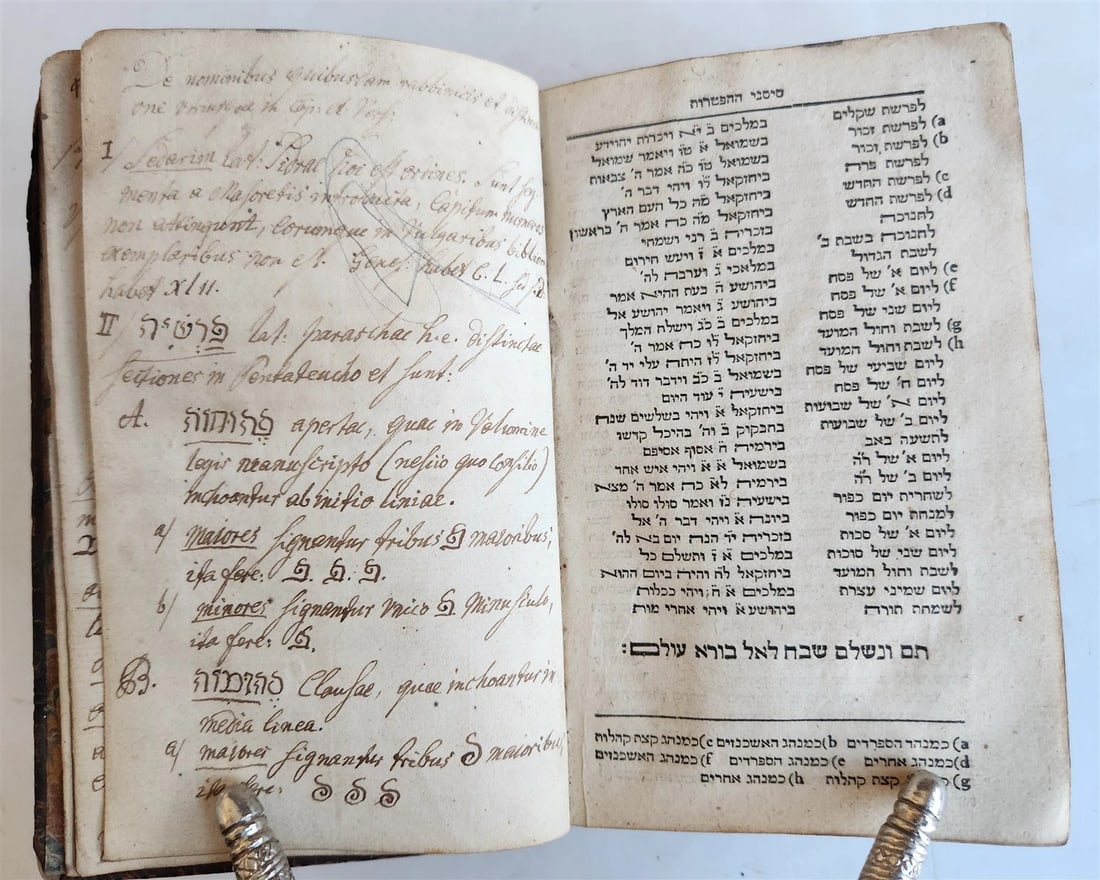 De nominibus quibusdam rabbinicis et
one in
I Sedarim lat: i et ordines. Sunt seg
menta a Masoretis introducta, Capitum numeros
non attingunt, eorumque in Vulgaribus
exemplaribus non est. Genes: habet C. L. sed
habet XLII.
II פרשיה lat: paraschae h. e. distinctae
sectiones in Pentateucho et sunt:
A. פתוחות apertae, quae in Volumine
legis manuscripto (nescio quo consilio)
inchoantur ab initio liniae.
a/ maiores signantur tribus פ maioribus,
ita fere: פ. פ. פ.
b/ minores signantur unico פ minusculo,
ita fere: פ.
B. סתומות Clausae, quae inchoantur in
media linea.
a/ maiores signantur tribus ס maioribus
ita fere: ס ס ס
סימני ההפטרות
לפרשת שקלים במלכים ב י״א ויכרות יהוידע
a) לפרשת זכור בשמואל א ט״ו ויאמר שמואל
b) לפרשת זכור בשמואל א ט״ו כה אמר ה' צבאות
לפרשת פרה ביחזקאל ל״ו ויהי דבר ה'
c) לפרשת החדש ביחזקאל מ״ה כל העם הארץ
d) לפרשת החדש ביחזקאל מ״ה כה אמר ה' בראשון
לחנוכה בזכריה ב רני ושמחי
לחנוכה בשבת ב' במלכים א ז ויעש חירום
לשבת הגדול במלאכי ג וערבה לה'
e) ליום א' של פסח ביהושע ה בעת ההיא אמר
f) ליום א' של פסח ביהושע ג ויאמר יהושע אל
ליום שני של פסח במלכים ב כ״ג וישלח המלך
g) לשבת וחול המועד ביחזקאל ל״ו כה אמר ה'
h) לשבת וחול המועד ביחזקאל ל״ז היתה עלי יד ה'
ליום שביעי של פסח בשמואל ב כ״ב וידבר דוד לה'
ליום ח' של פסח בישעיה י עוד היום
ליום א' של שבועות ביחזקאל א ויהי בשלשים שנה
ליום ב' של שבועות בחבקוק ב וה' בהיכל קדשו
לתשעה באב בירמיה ח אסוף אסיפם
ליום א' של ר״ה בשמואל א א ויהי איש אחד
ליום ב' של ר״ה בירמיה ל״א כה אמר ה' מצא
לשחרית יום כפור בישעיה נ״ז ואמר סולו סולו
למנחת יום כפור ביונה א ויהי דבר ה' אל
ליום א' של סכות בזכריה י״ד הנה יום בא לה'
ליום שני של סוכות במלכים א ז ותשלם כל
לשבת וחול המועד ביחזקאל ל״ח והיה ביום ההוא
ליום שמיני עצרת במלכים א ח ויהי ככלות
לשמחת תורה ביהושע א ויהי אחרי מות
תם ונשלם שבח לאל בורא עולם:
a) כמנהג הספרדים b) כמנהג האשכנזים c) כמנהג קצת קהלות
d) כמנהג אחרים e) כמנהג הספרדים f) כמנהג האשכנזים
g) קצת קהלות h) כמנהג אחרים